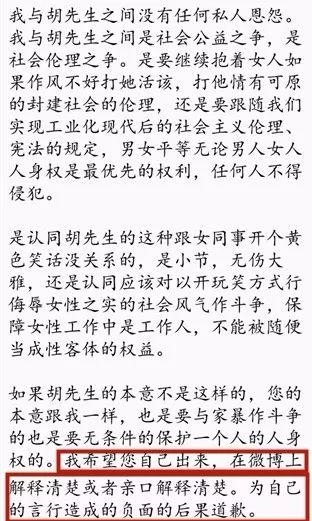 我与胡先生之间没有任何私人恩怨。
我与胡先生之间是社会公益之争，是
社会伦理之争。是要继续抱着女人如
果作风不好打她活该，打他情有可原
的封建社会的伦理，还是要跟随我们
实现工业化现代后的社会主义伦理、
宪法的规定，男女平等无论男人女人
人身权是最优先的权利，任何人不得
侵犯。
是认同胡先生的这种跟女同事开个黄
色笑话没关系的，是小节，无伤大
雅，还是认同应该对以开玩笑方式行
侮辱女性之实的社会风气作斗争，保
障女性工作中是工作人，不能被随便
当成性客体的权益。
如果胡先生的本意不是这样的，您的
本意跟我一样，也是要与家暴作斗争
的也是要无条件的保护一个人的人身
权的。我希望您自己出来，在微博上
解释清楚或者亲口解释清楚。为自己
的言行造成的负面的后果道歉。